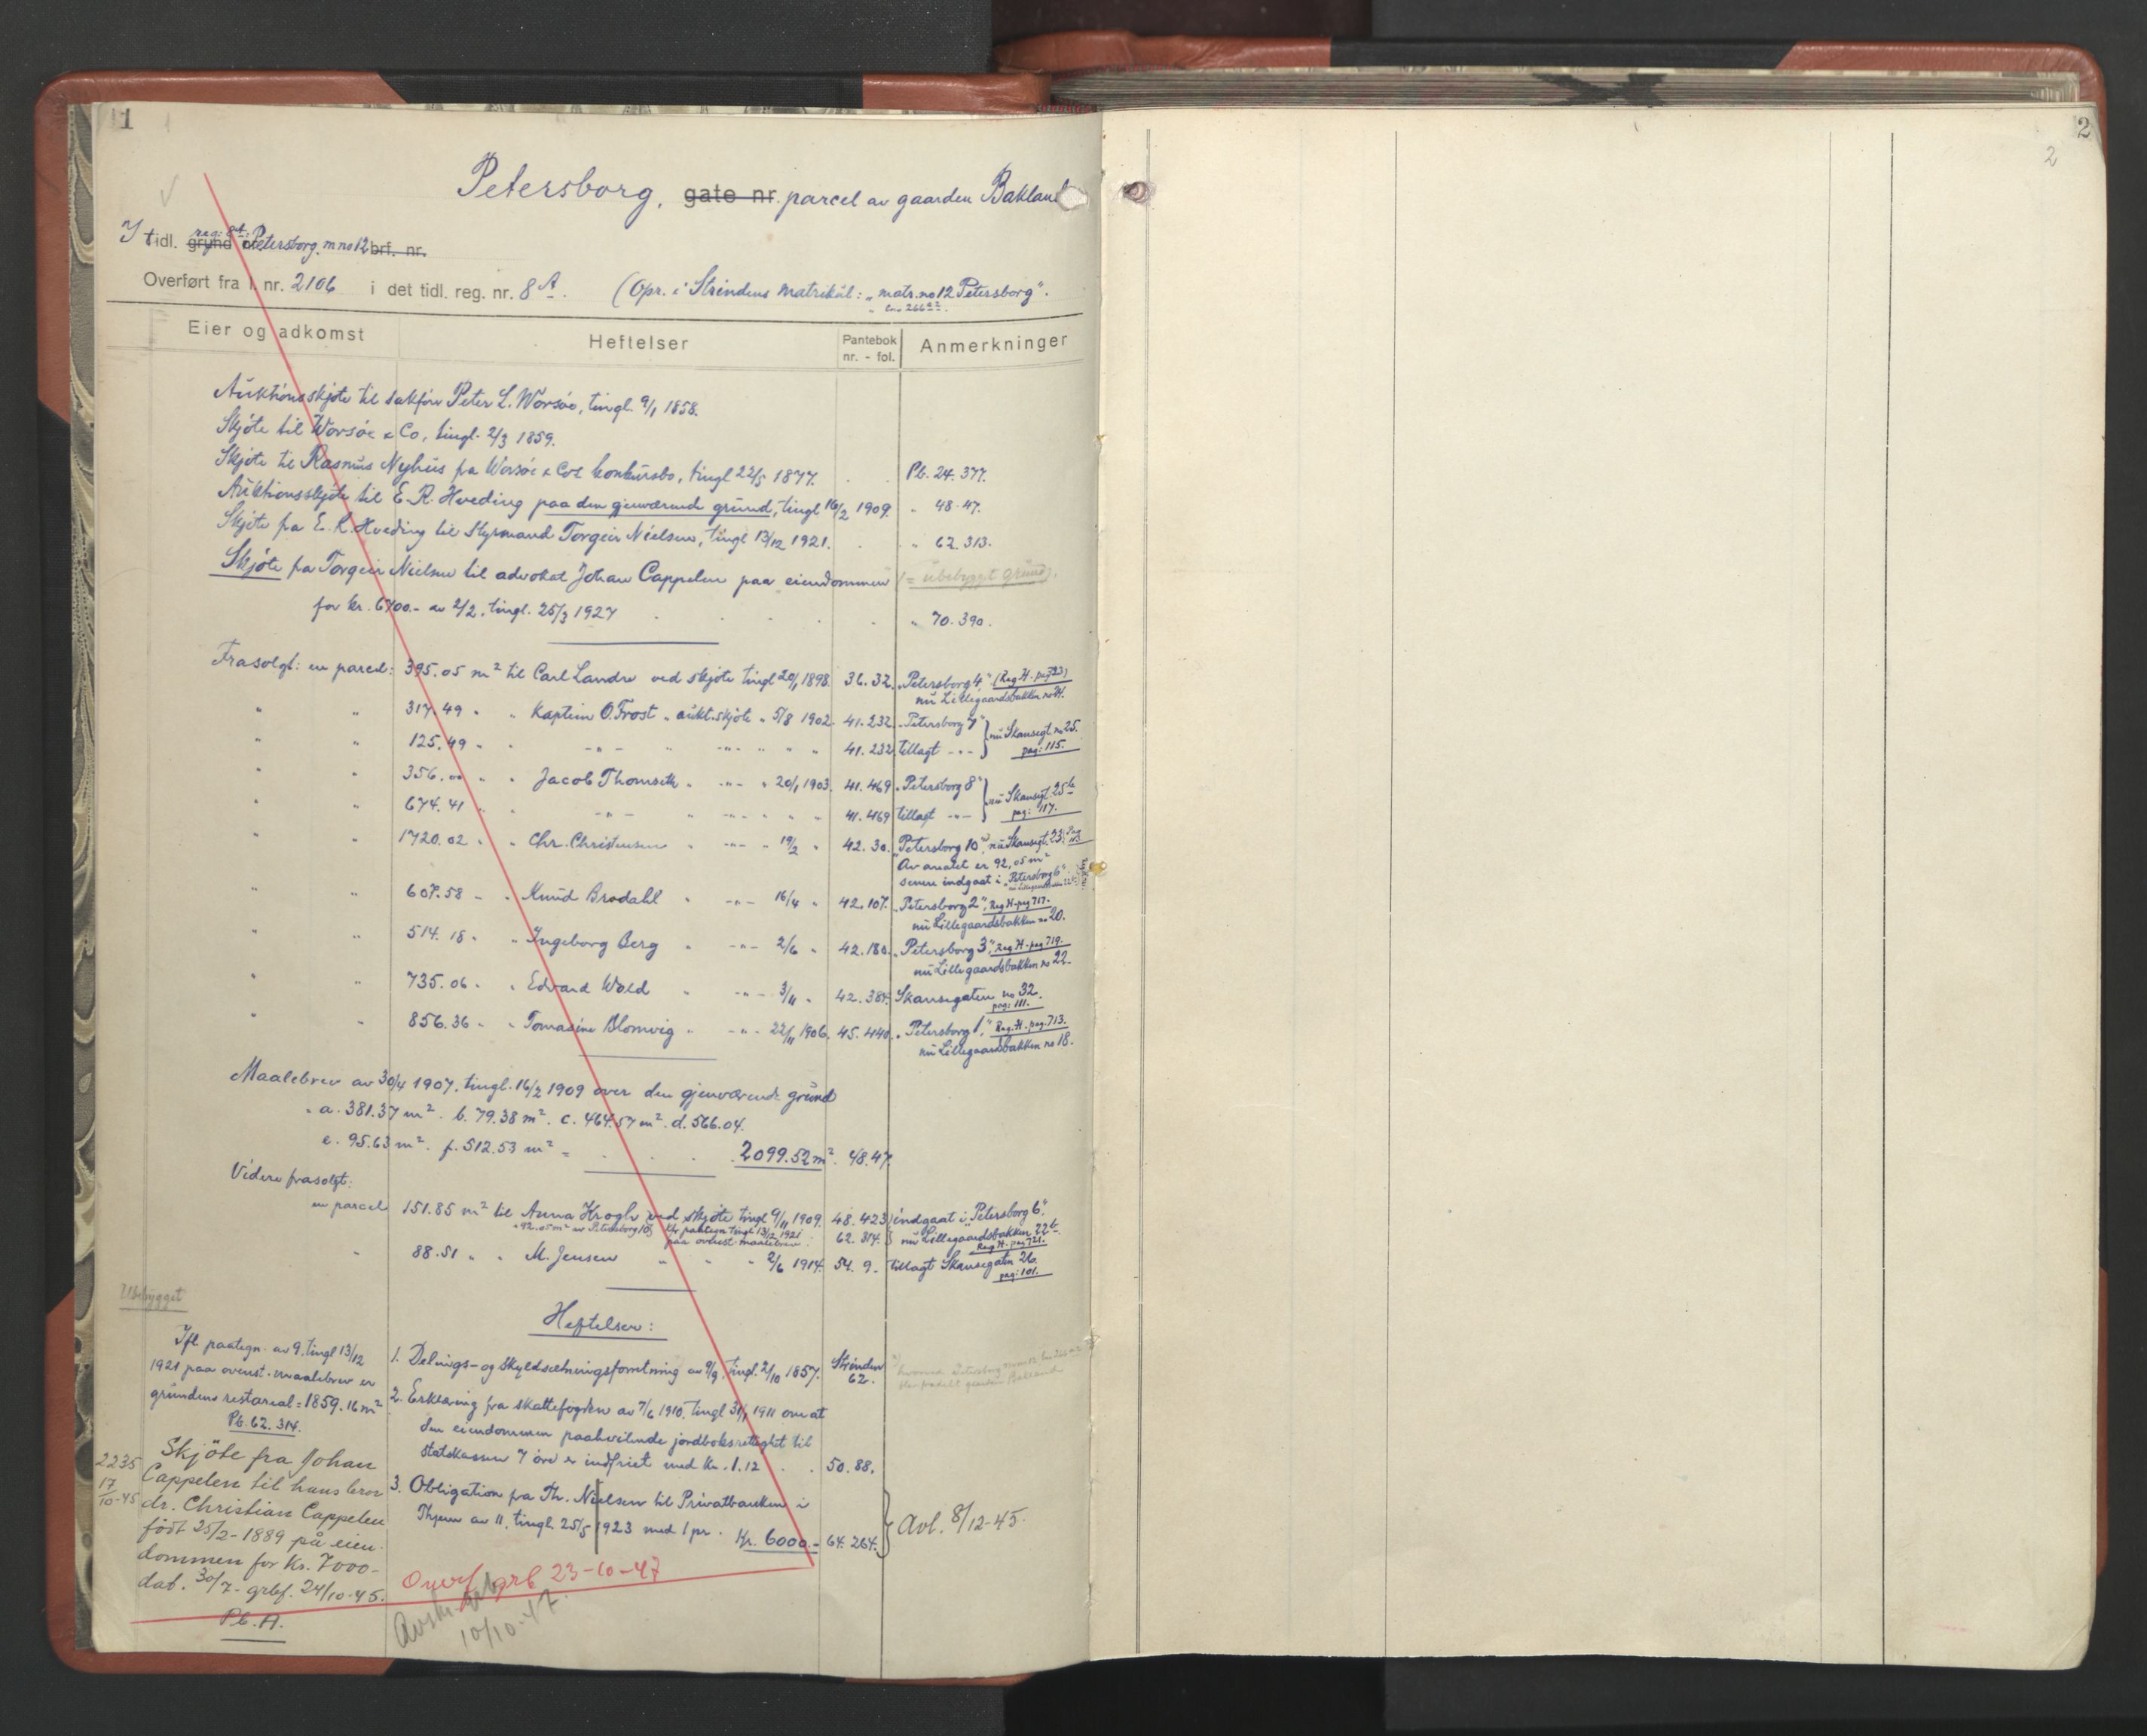 1
1
Petersborg, gate nr. parcel av gaarden Bakland
I tidl. grund reg: 8A: Petersborg. m no 12 brf. nr.
Overført fra l. nr. 2106 i det tidl. reg. nr. 8A. (Opr. i Strindens matrikul: "matr. no 12 Petersborg".
Eier og adkomst Heftelser Pantebok nr. - fol. Anmerkninger
Auktionsskjøte til sakfører Peter L. Worsøe, tingl. 9/1 1858.
Skjøte til Worsøe & Co, tingl. 2/3 1859.
Skjøte til Rasmus Nyhus fra Worsøe & Co's konkursbo, tingl 22/5 1877. Pb. 24. 377.
Auktionsskjøte til E. R. Hveding paa den gjenværende grund, tingl 16/2 1909. " 48. 47.
Skjøte fra E. R. Hveding til Styrmand Torgeir Nielsen, tingl 13/12 1921. " 62. 313.
Skjøte fra Torgeir Nielsen til advokat Johan Cappelen paa eiendommen (= ubebygget grund).
for kr. 6700.- av 2/2, tingl. 25/3 1927 " 70. 390.
Frasolgt: en parcel: 395.05 m² til Carl Landrø ved skjøte tingl 20/1 1898. 36. 32. "Petersborg 4," (Reg. H. pag 723)
nu Lillegaardsbakken no 24.
" " 317.49 " " Kaptein O. Frost " aukt.skjøte " 5/8 1902. 41. 232. "Petersborg 7" } nu Skansegt. no 25.
" " 125.49 " " -"- " -"- " " " 41. 232 tillagt -"- } pag: 115.
" " 356.00 " " Jacob Thomseth " -"- " 20/1 1903. 41. 469 "Petersborg 8" } nu Skansegt 25b
" " 674.41 " " -"- " -"- " " " 41. 469 tillagt -"- } pag: 117.
" " 1720.02 " " Chr. Christensen " -"- " 19/2 " 42. 30. "Petersborg 10", nu Skansegt. 23, Pag 113
Av arealet er 92,05 m²
senere indgaat i "Petersborg 6"
" " 607.58 " " Knud Brodahl " -"- 16/4 " 42. 107. "Petersborg 2", Reg H. pag 717.
nu Lillegaardsbakken no 20.
" " 514.18 " " Ingeborg Berg " -"- 2/6 " 42. 180. "Petersborg 3", Reg. H. pag 719.
nu Lillegaardsbakken no 22.
" " 735.06 " " Edvard Wold " -"- 3/11 " 42. 385. Skansegaten no 32.
pag: 111.
" " 856.36 " " Tomasine Blomvig " -"- 22/11 1906. 45. 440. "Petersborg 1," Reg. H. pag. 713.
nu Lillegaardsbakken no 18.
Maalebrev av 30/4 1907, tingl. 16/2 1909 over den gjenværende grund
" a. 381.37 m². b. 79.38 m². c. 464.57 m². d. 566.04.
e. 95.63 m². f. 512.53 m² = 2099.52 m². 48. 47.
Videre frasolgt:
en parcel 151.85 m² til Anna Krogh ved skjøte tingl 9/11 1909. 48. 423 } indgaat i "Petersborg 6".
+ 92.05 m² av Petersborg 10, kfr paategn. tingl 13/12 1921 62. 314. } nu Lillegaardsbakken 22b.
paa ovenst. maalebrev. Reg H. pag 721.
" 88.51 " " M. Jensen " " " 2/6 1914. 54. 9. tillagt Skansegaten 26.
pag: 101.
Ubebygget
Heftelser:
Ifl paategn. av 9, tingl 13/12
1921 paa ovenst. maalebrev er
grundens restareal = 1859.16 m²
Pb. 62. 314.
1. Delings- og skyldsætningsforretning av 9/9, tingl. 2/10 1857. Strinden
62.
2. Erklæring fra skattefogden av 7/6 1910, tingl 31/1 1911 om at
den eiendommen paahvilende jordboksrettighet til
statskassen 7 øre er indfriet med kr. 1.12 50. 88.
3. Obligation fra Th. Nielsen til Privatbanken i
Thjem av 11, tingl. 25/5 1923 med 1 pr. Kr. 6000.- 64. 264. } Avl. 8/12-45.
2235
17/10-45
Skjöte fra Johan
Cappelen til hans bror
dr. Christian Cappelen
födt 25/2-1889 på eien-
dommen for Kr. 7000-
dat. 30/7- grbf. 24/10-45.
Pb. A.
Overf grb 23-10-47
Avskr. grb
10/10-47.
2
2